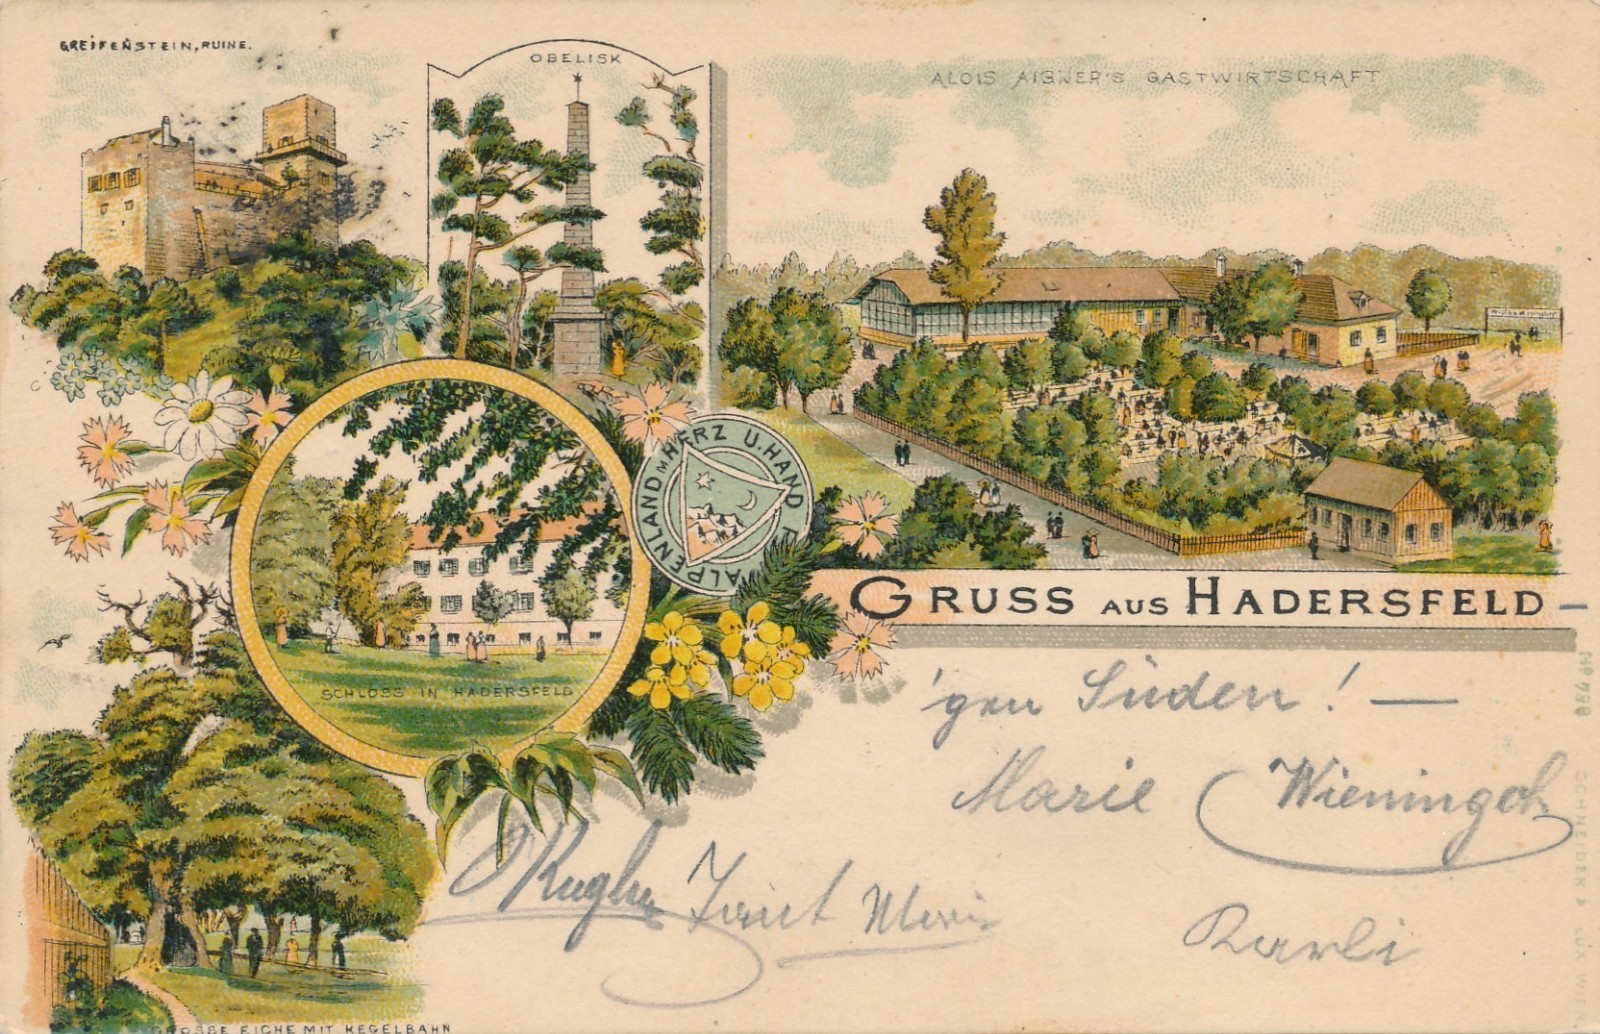 GREIFENSTEIN, RUINE.
OBELISK
ALOIS AIGNER'S GASTWIRTSCHAFT
ALPENLAND M HERZ U. HAND
SCHLOSS IN HADERSFELD
GRUSS AUS HADERSFELD
'gen Süden! —
Marie
Karli
GROSSE EICHE MIT KEGELBAHN
No 738 SCHNEIDER & LUX WIEN